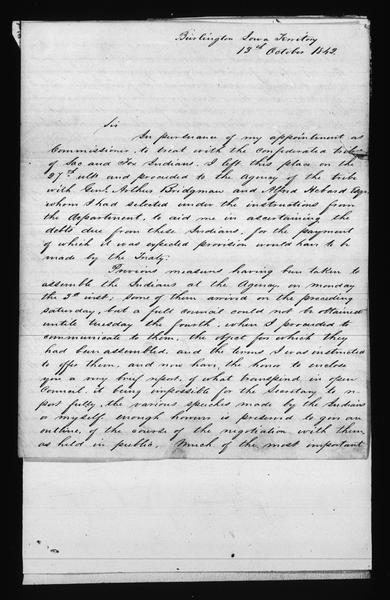 Burlington Iowa Territory
13th October 1842
Sir
In pursuance of my appointment as
Commissioner, to treat with the confederated tribes
of Sac and Fox Indians, I left this place on the
27th ulto and proceeded to the Agency of the tribe
with Genl. Arthur Bridgman and Alfred Hebard Esqr
whom I had selected under the instructions from
the Department, to aid me in ascertaining the
debts due from these Indians, for the payment
of which it was expected provision would have to be
made by the Treaty;
Previous measures having been taken to
assemble the Indians at the Agency, on monday
the 3d inst; some of them arrived on the preceeding
saturday, but a full council could not be obtained
until tuesday the fourth, when I proceeded to
communicate to them, the object for which they
had been assembled, and the terms I was instructed
to offer them, and now have the honor to enclose
you a very brief report, of what transpired in open
Council. It being impossible for the Secretary to re-
port fully the various speeches made by the Indians
or myself, enough however is preserved to give an
outline, of the course of the negotiation with them
as held in public. Much of the most important